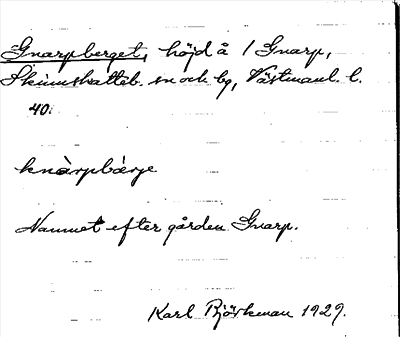 Gnarpberget, höjd å 1 Gnarp,
Skinnskatteb. sn och bg, Västmanl. l.
40.
knàrpbǽrje
Namnet efter gården Gnarp.
Karl Björkman 1929.